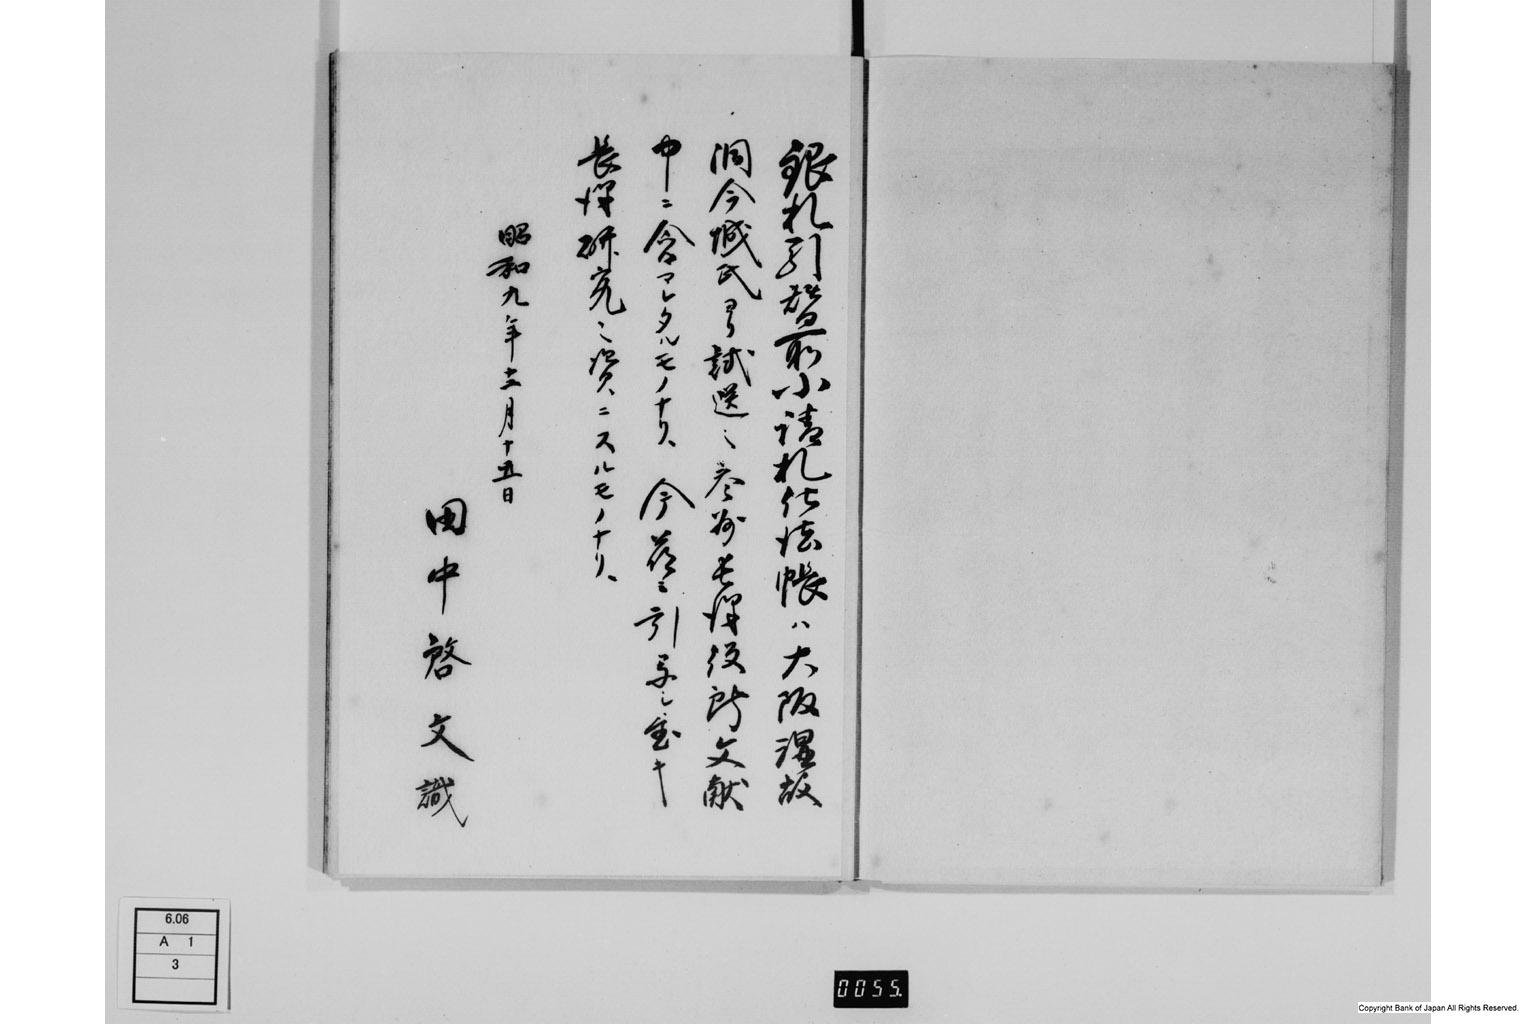 銀札引替所小請札仕法帳ハ大阪温故
洞今城氏ヨリ試送シ
長煇役所文献
中ニ含マレタルモノナリ、今茲ニ引写シ置キ
長煇研究ノ資ニスルモノナリ、
昭和九年十二月十五日
田中啓文識
6.06
A 1
3
0055.
Copyright Bank of Japan All Rights Reserved.